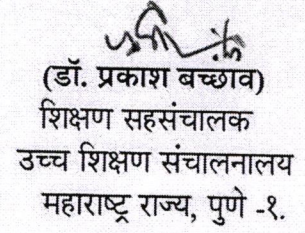 (डॉ. प्रकाश बच्छाव)
शिक्षण सहसंचालक
उच्च शिक्षण संचालनालय
महाराष्ट्र राज्य, पुणे -१.